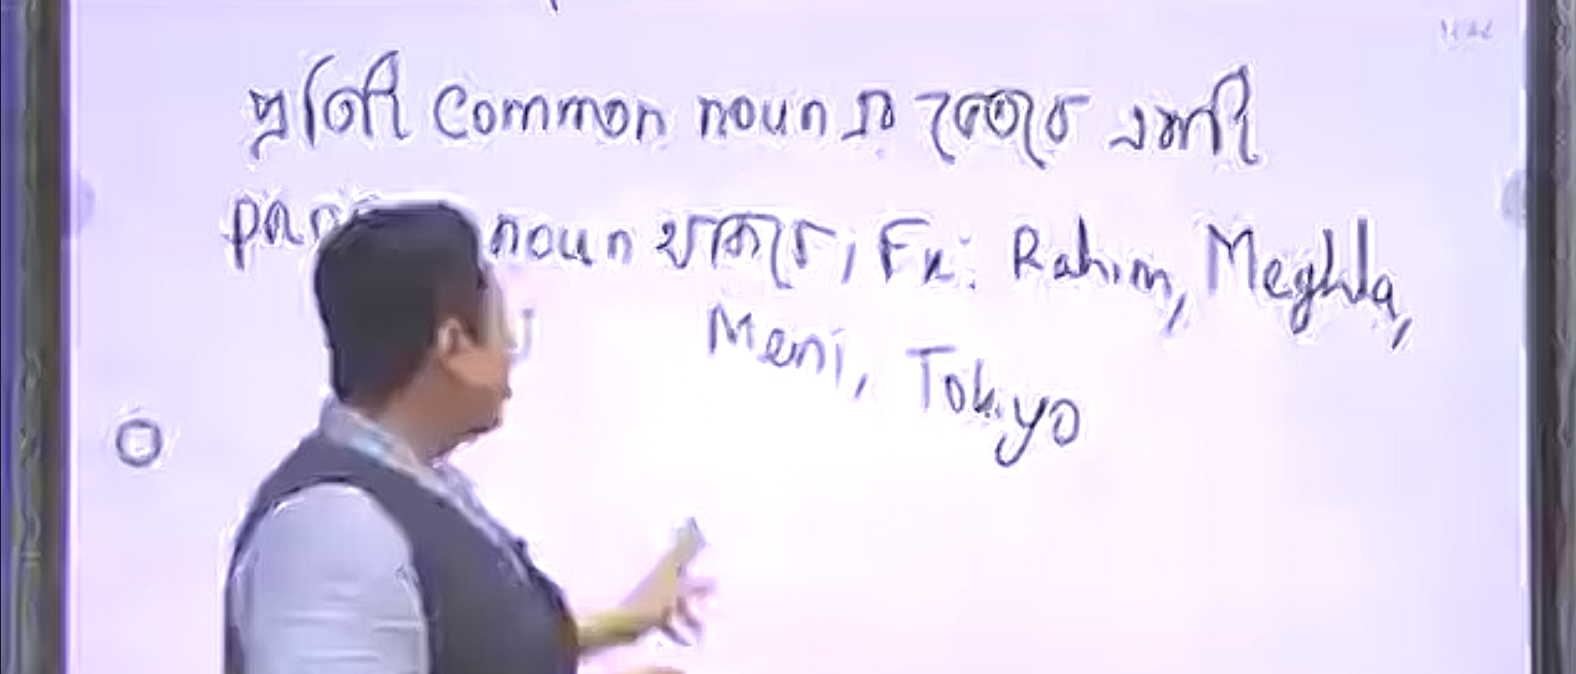 প্রতিটি Common noun এর ভেতরে একটি
noun থাকবে, Ex: Rahim, Meghla,
Meni, Tokyo